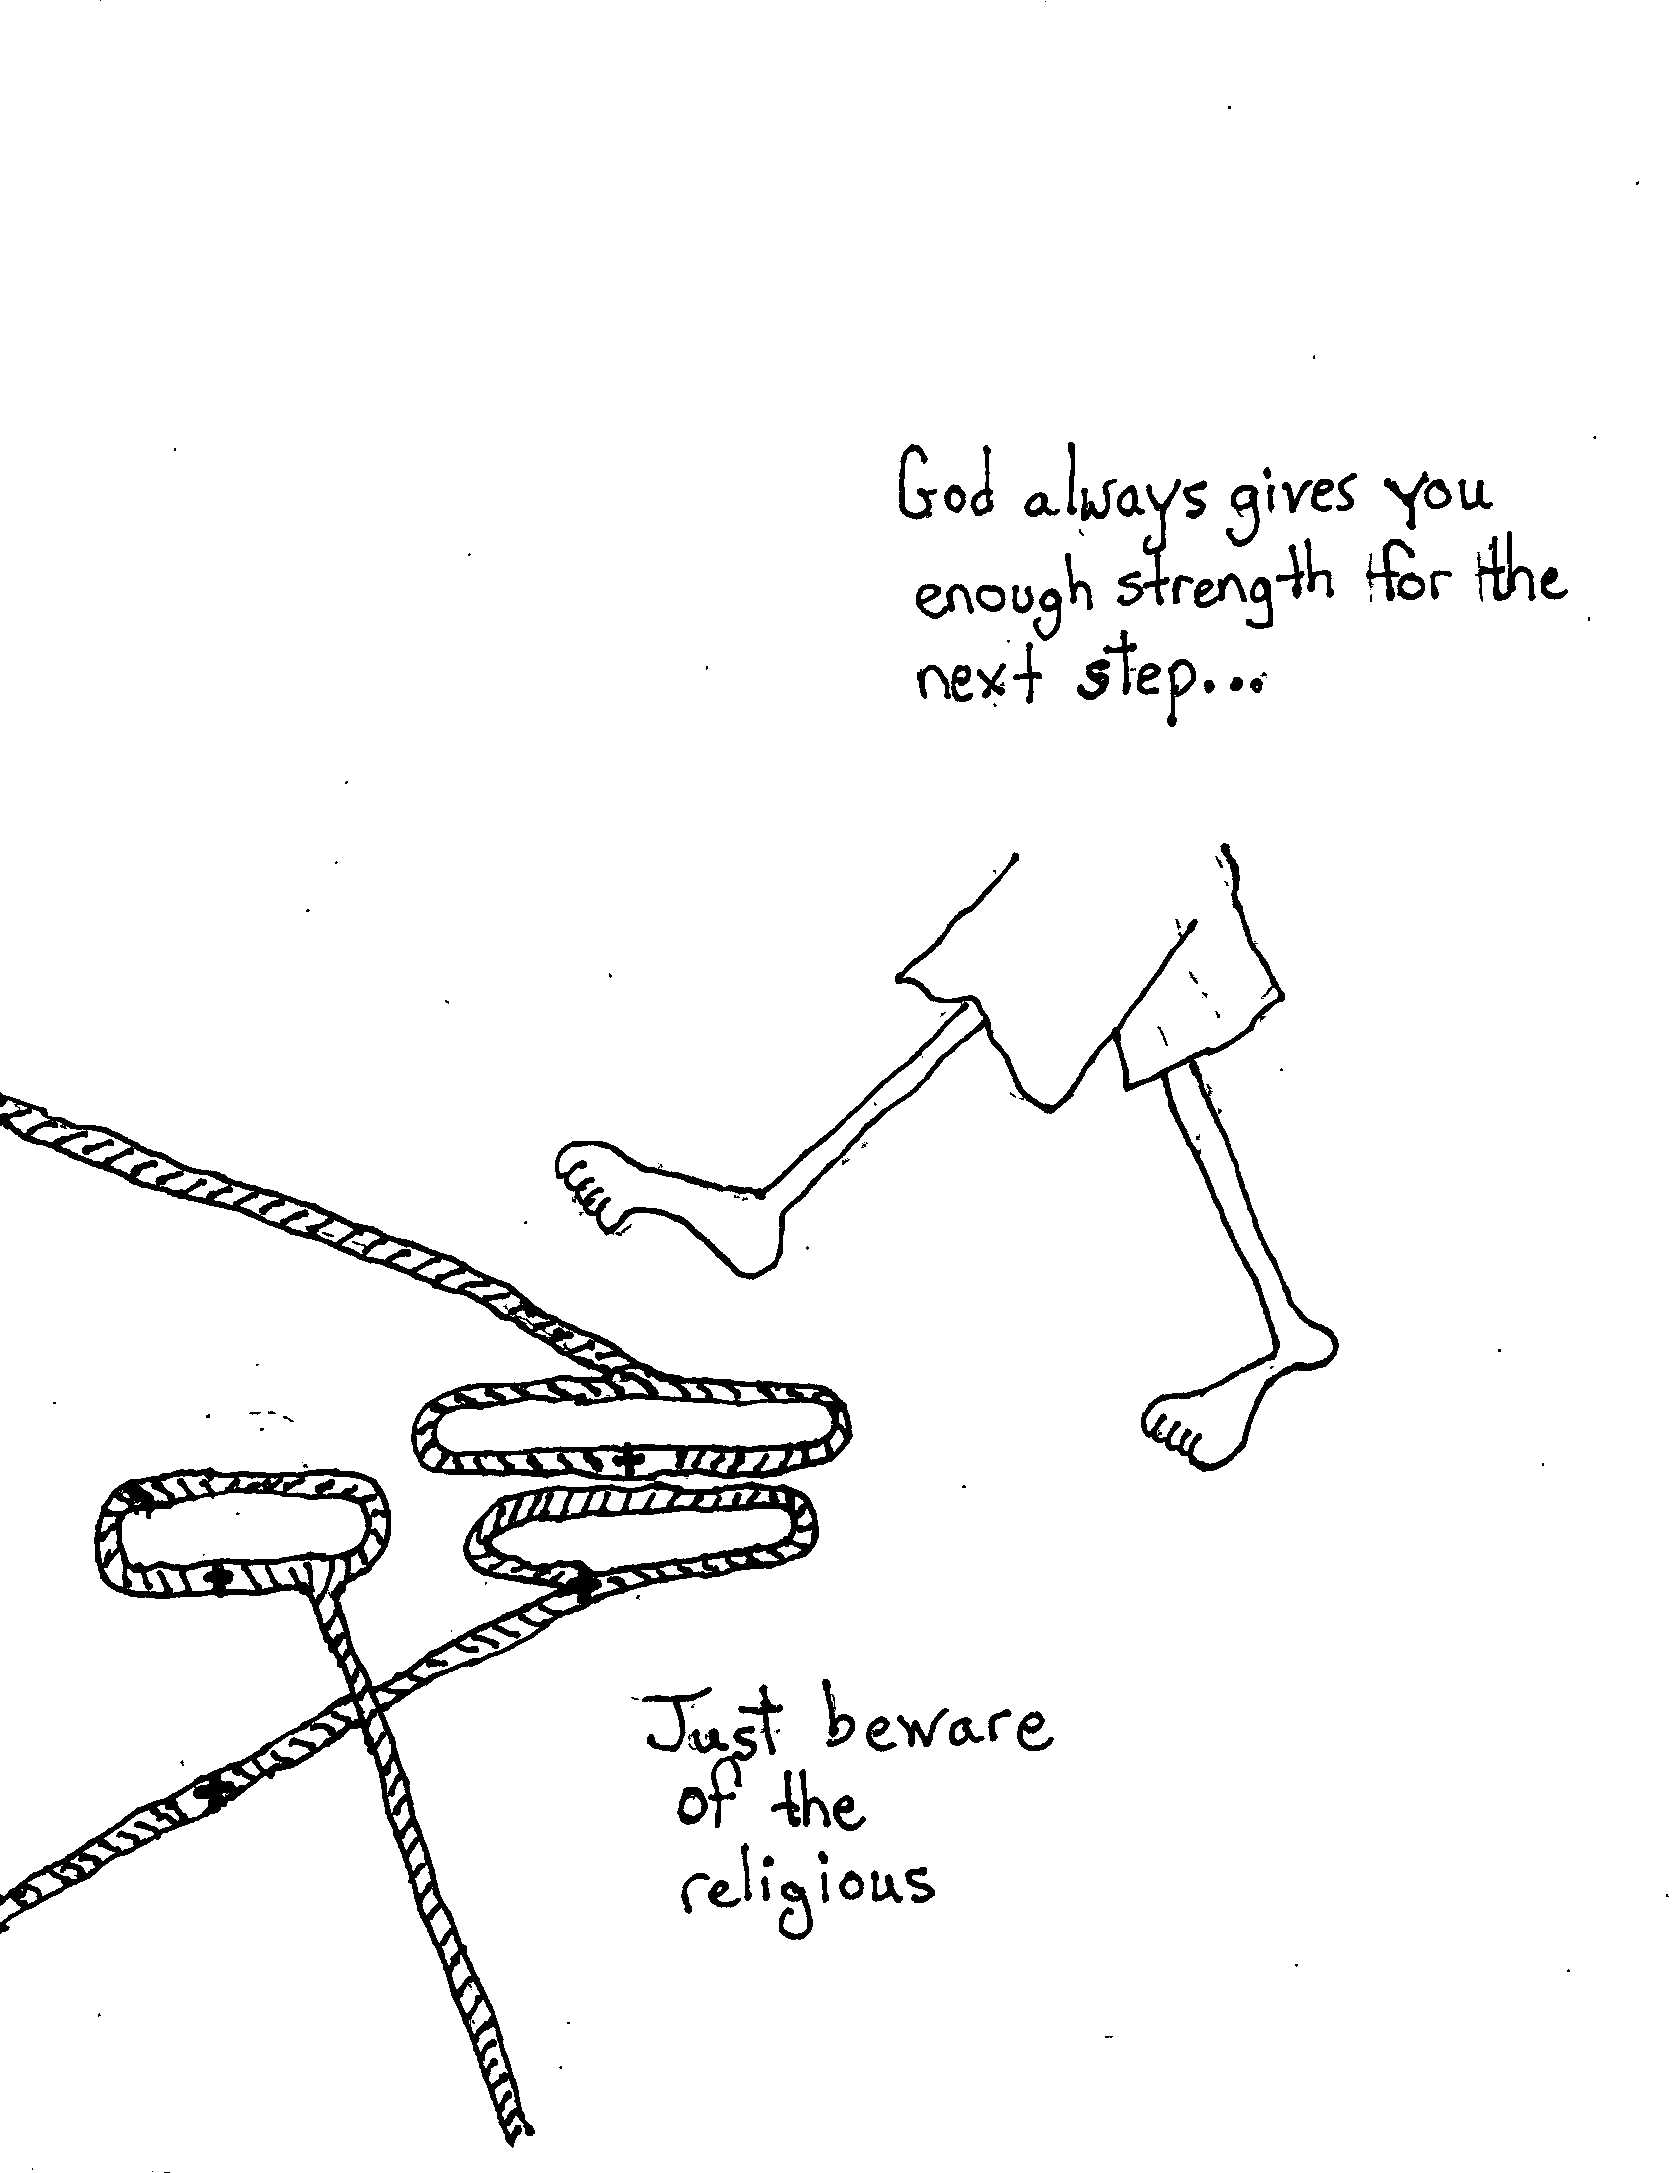 God always gives you
enough strength for the
next step...
Just beware
of the
religious